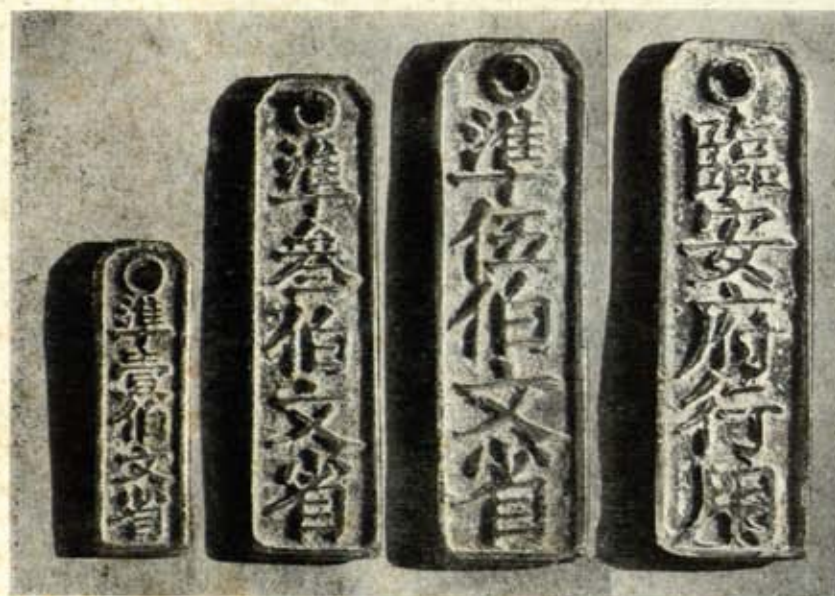 準壹伯文省
準叁伯文省
準伍伯文省
臨安府行用